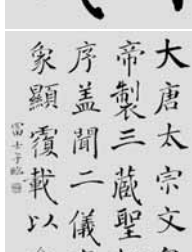 大唐太宗文
帝製三藏聖
序盖聞二儀
象顯覆載以
富士子臨